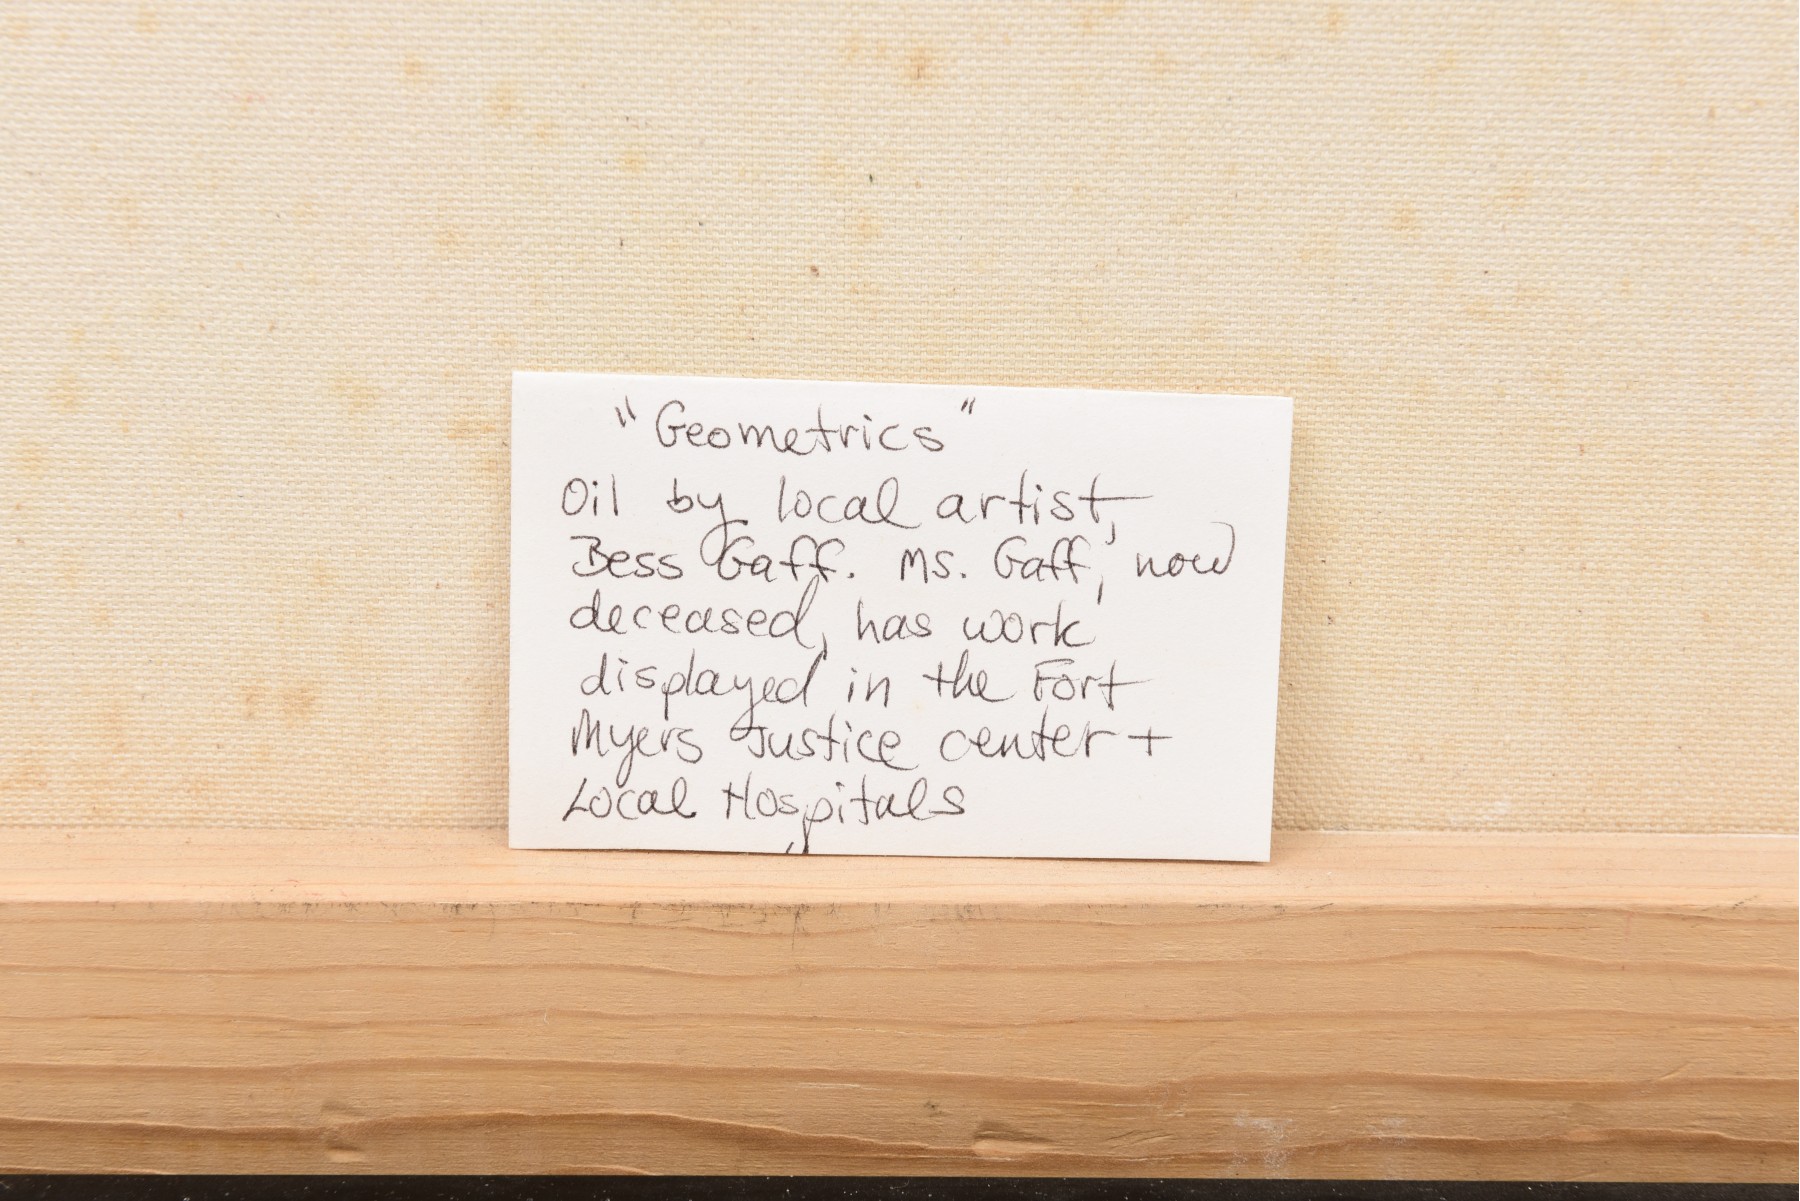 "Geometrics"
Oil by local artist,
Bess Gaff. Ms. Gaff, now
deceased, has work
displayed in the Fort
Myers Justice center +
Local Hospitals